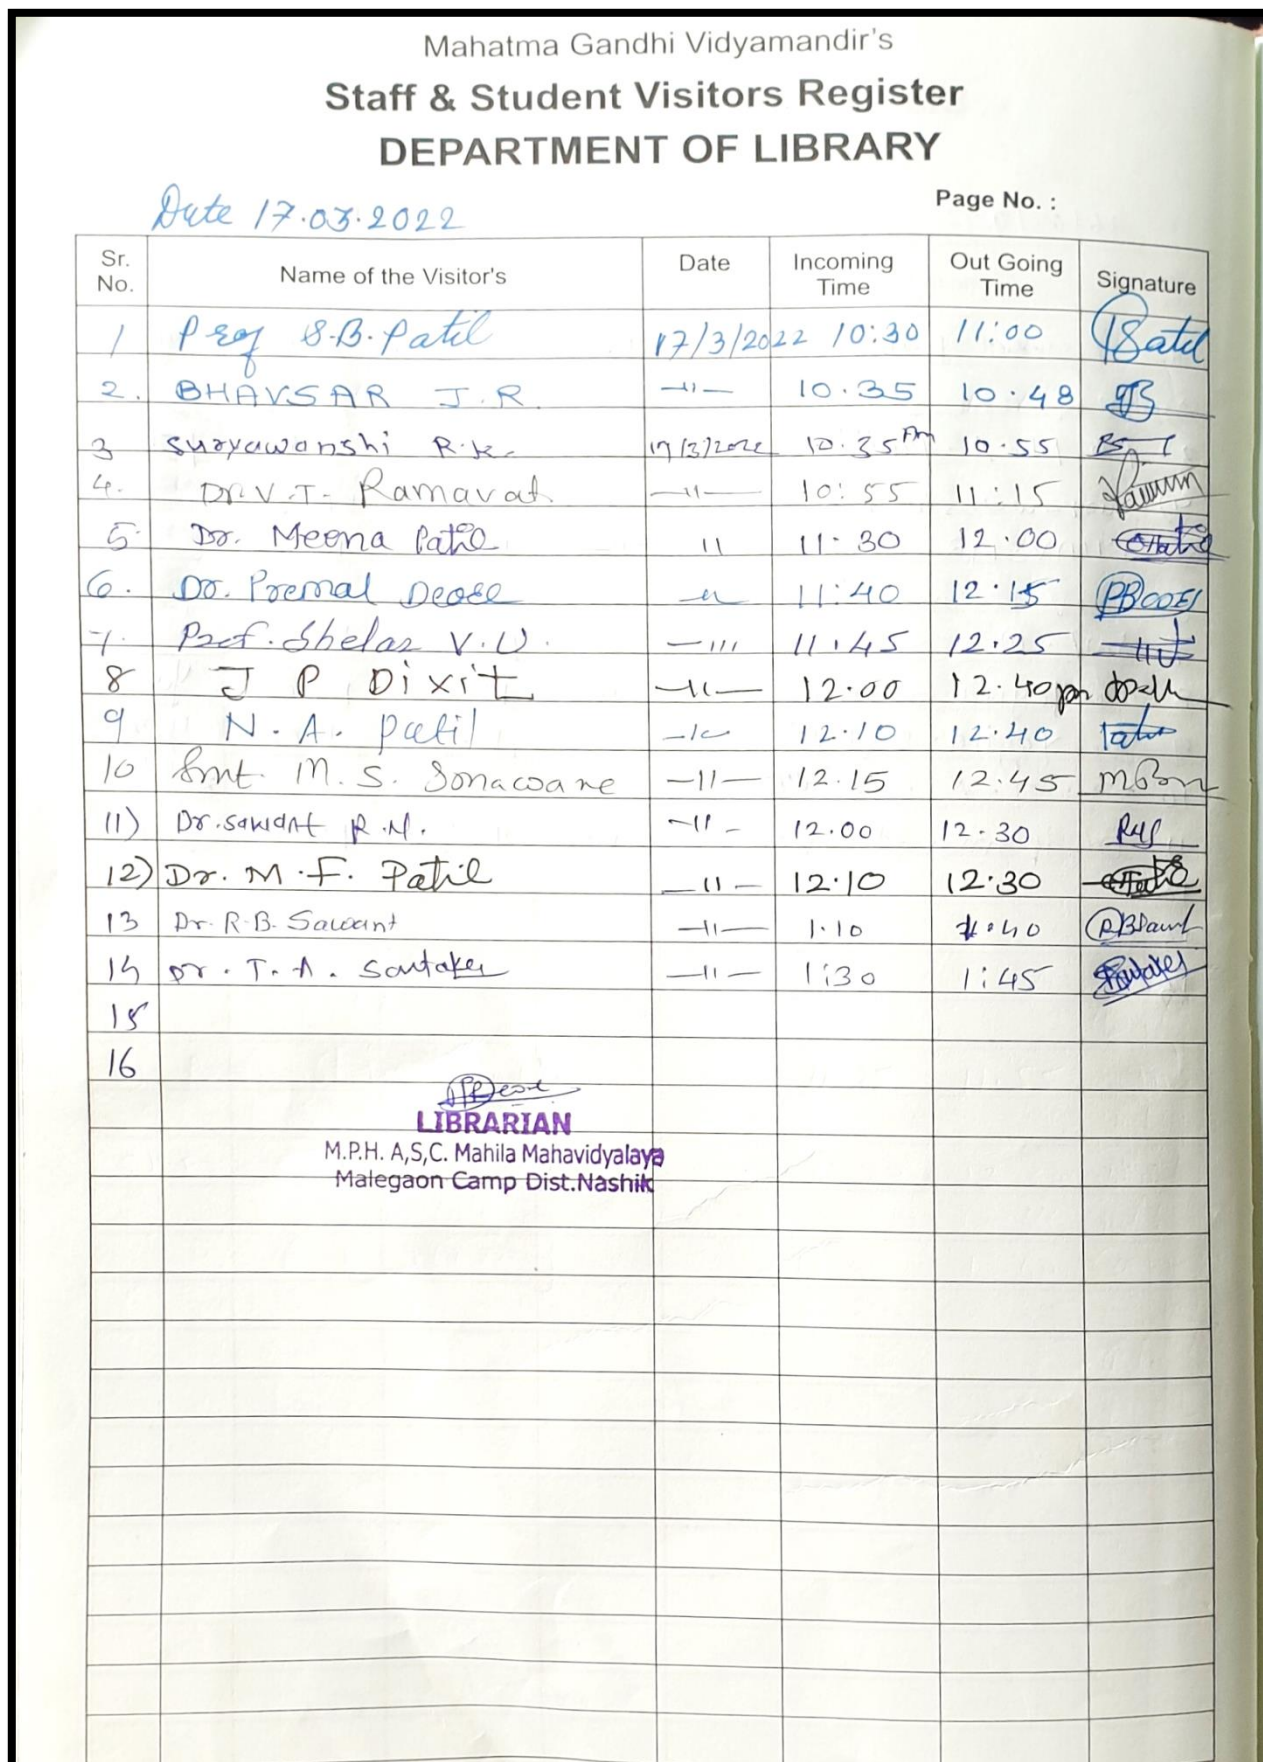 Mahatma Gandhi Vidyamandir's
Staff & Student Visitors Register
DEPARTMENT OF LIBRARY
Page No. :
Date 17.03.2022
Sr. No. Name of the Visitor's Date Incoming Time Out Going Time Signature
1 Prof S.B. Patil 17/3/2022 10:30 11:00
2. BHAVSAR J.R. —"— 10.35 10.48
3 Suryawanshi R.K. 17/3/2022 10.35 Am 10.55
4. Dr. V.T. Ramavat —"— 10:55 11:15
5. Dr. Meena Patil " 11.30 12.00
6. Dr. Premal Deore —"— 11:40 12.15
7. Prof. Shelar V.U. —"— 11.45 12.25
8 J P Dixit —"— 12.00 12.40 pm
9 N. A. Patil —"— 12.10 12.40
10 Smt. M. S. Sonawane —"— 12.15 12.45
11) Dr. Sawant R.N. —"— 12.00 12.30
12) Dr. M.F. Patil —"— 12.10 12.30
13 Dr. R.B. Sawant —"— 1.10 1.40
14 Dr. T. A. Santaker —"— 1:30 1:45
15
16
LIBRARIAN
M.P.H. A,S,C. Mahila Mahavidyalaya
Malegaon Camp Dist.Nashik